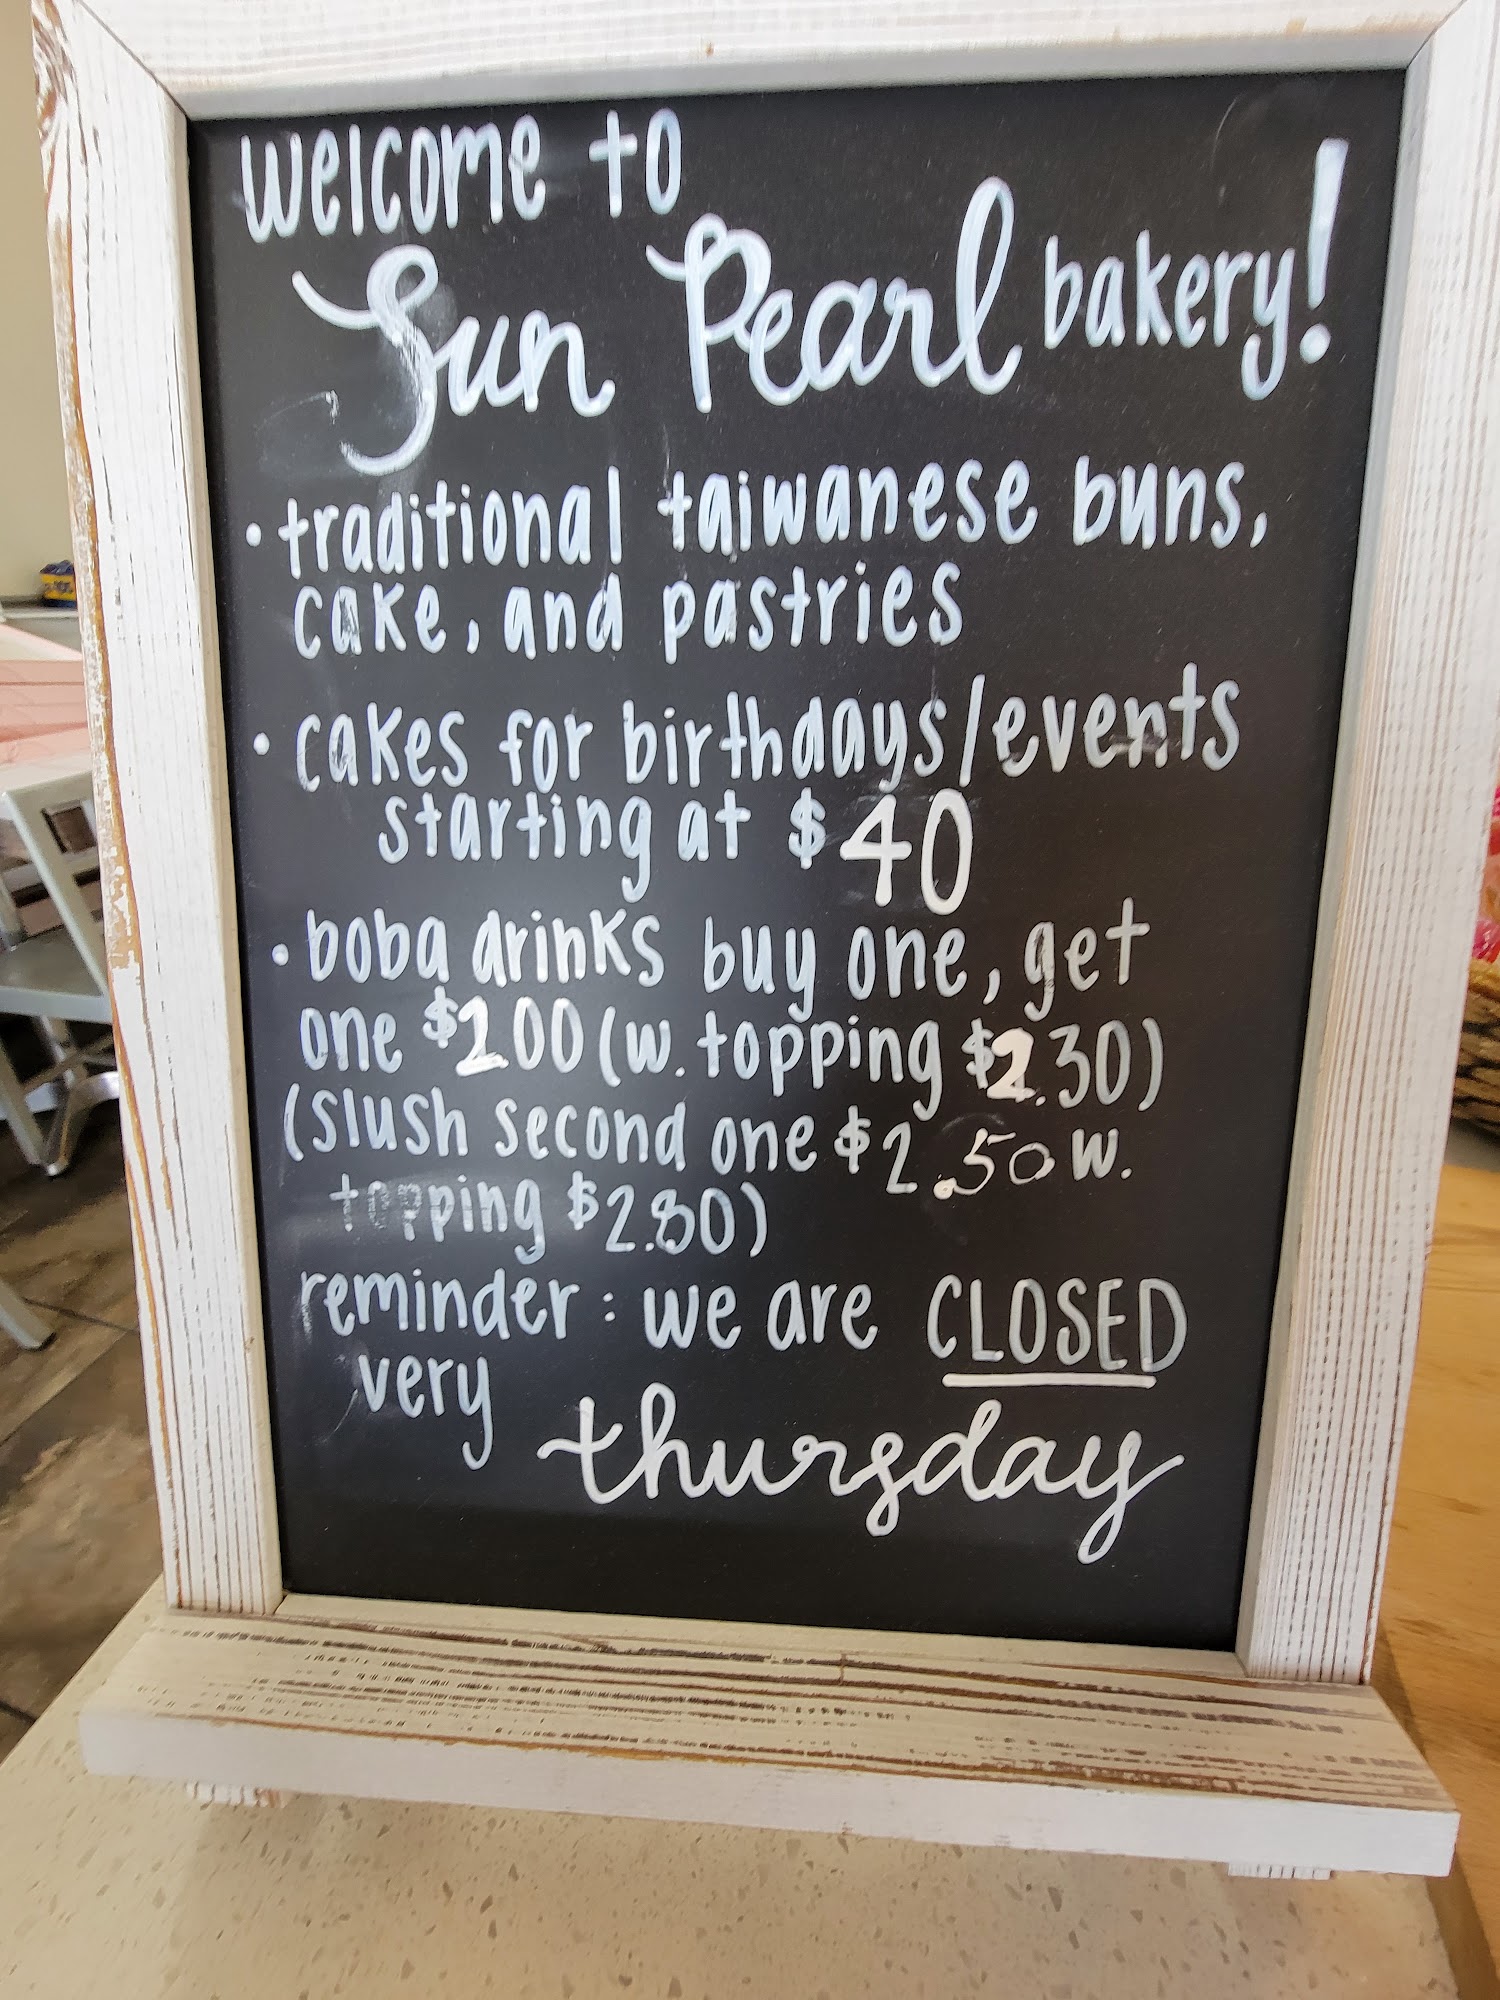 welcome to
Sun Pearl bakery!
• traditional taiwanese buns,
cake, and pastries
• cakes for birthdays/events
starting at $40
• boba drinks buy one, get
one $2.00 (w. topping $2.30)
(slush second one $2.50 w.
topping $2.80)
reminder: we are CLOSED
very
thursday